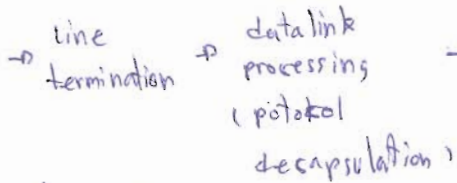 → line
termination
→ datalink
processing
(potokol
decapsulation)